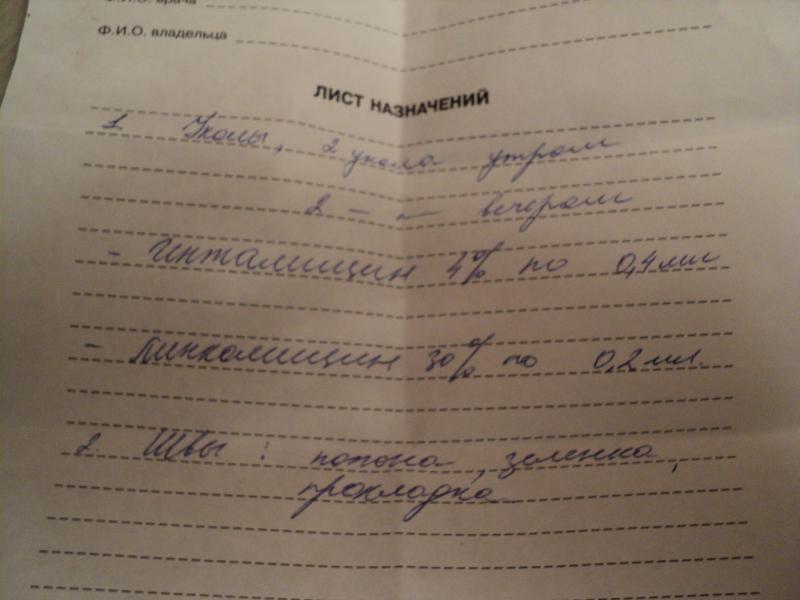 Ф.И.О. врача
Ф.И.О. владельца
ЛИСТ НАЗНАЧЕНИЙ
1. Уколы, 2 укола утром
2 — " — вечером
- Гентамицин 4% по 0,4 мл
- Линкомицин 30% по 0,2 мл.
2. Швы: попона, зеленка,
прокладка